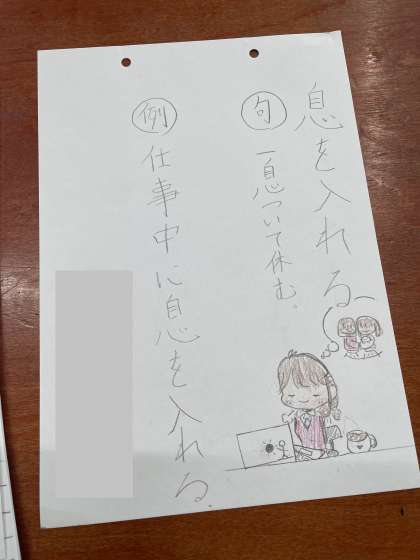 息を入れる
句 一息ついて休む。
例 仕事中に息を入れる。